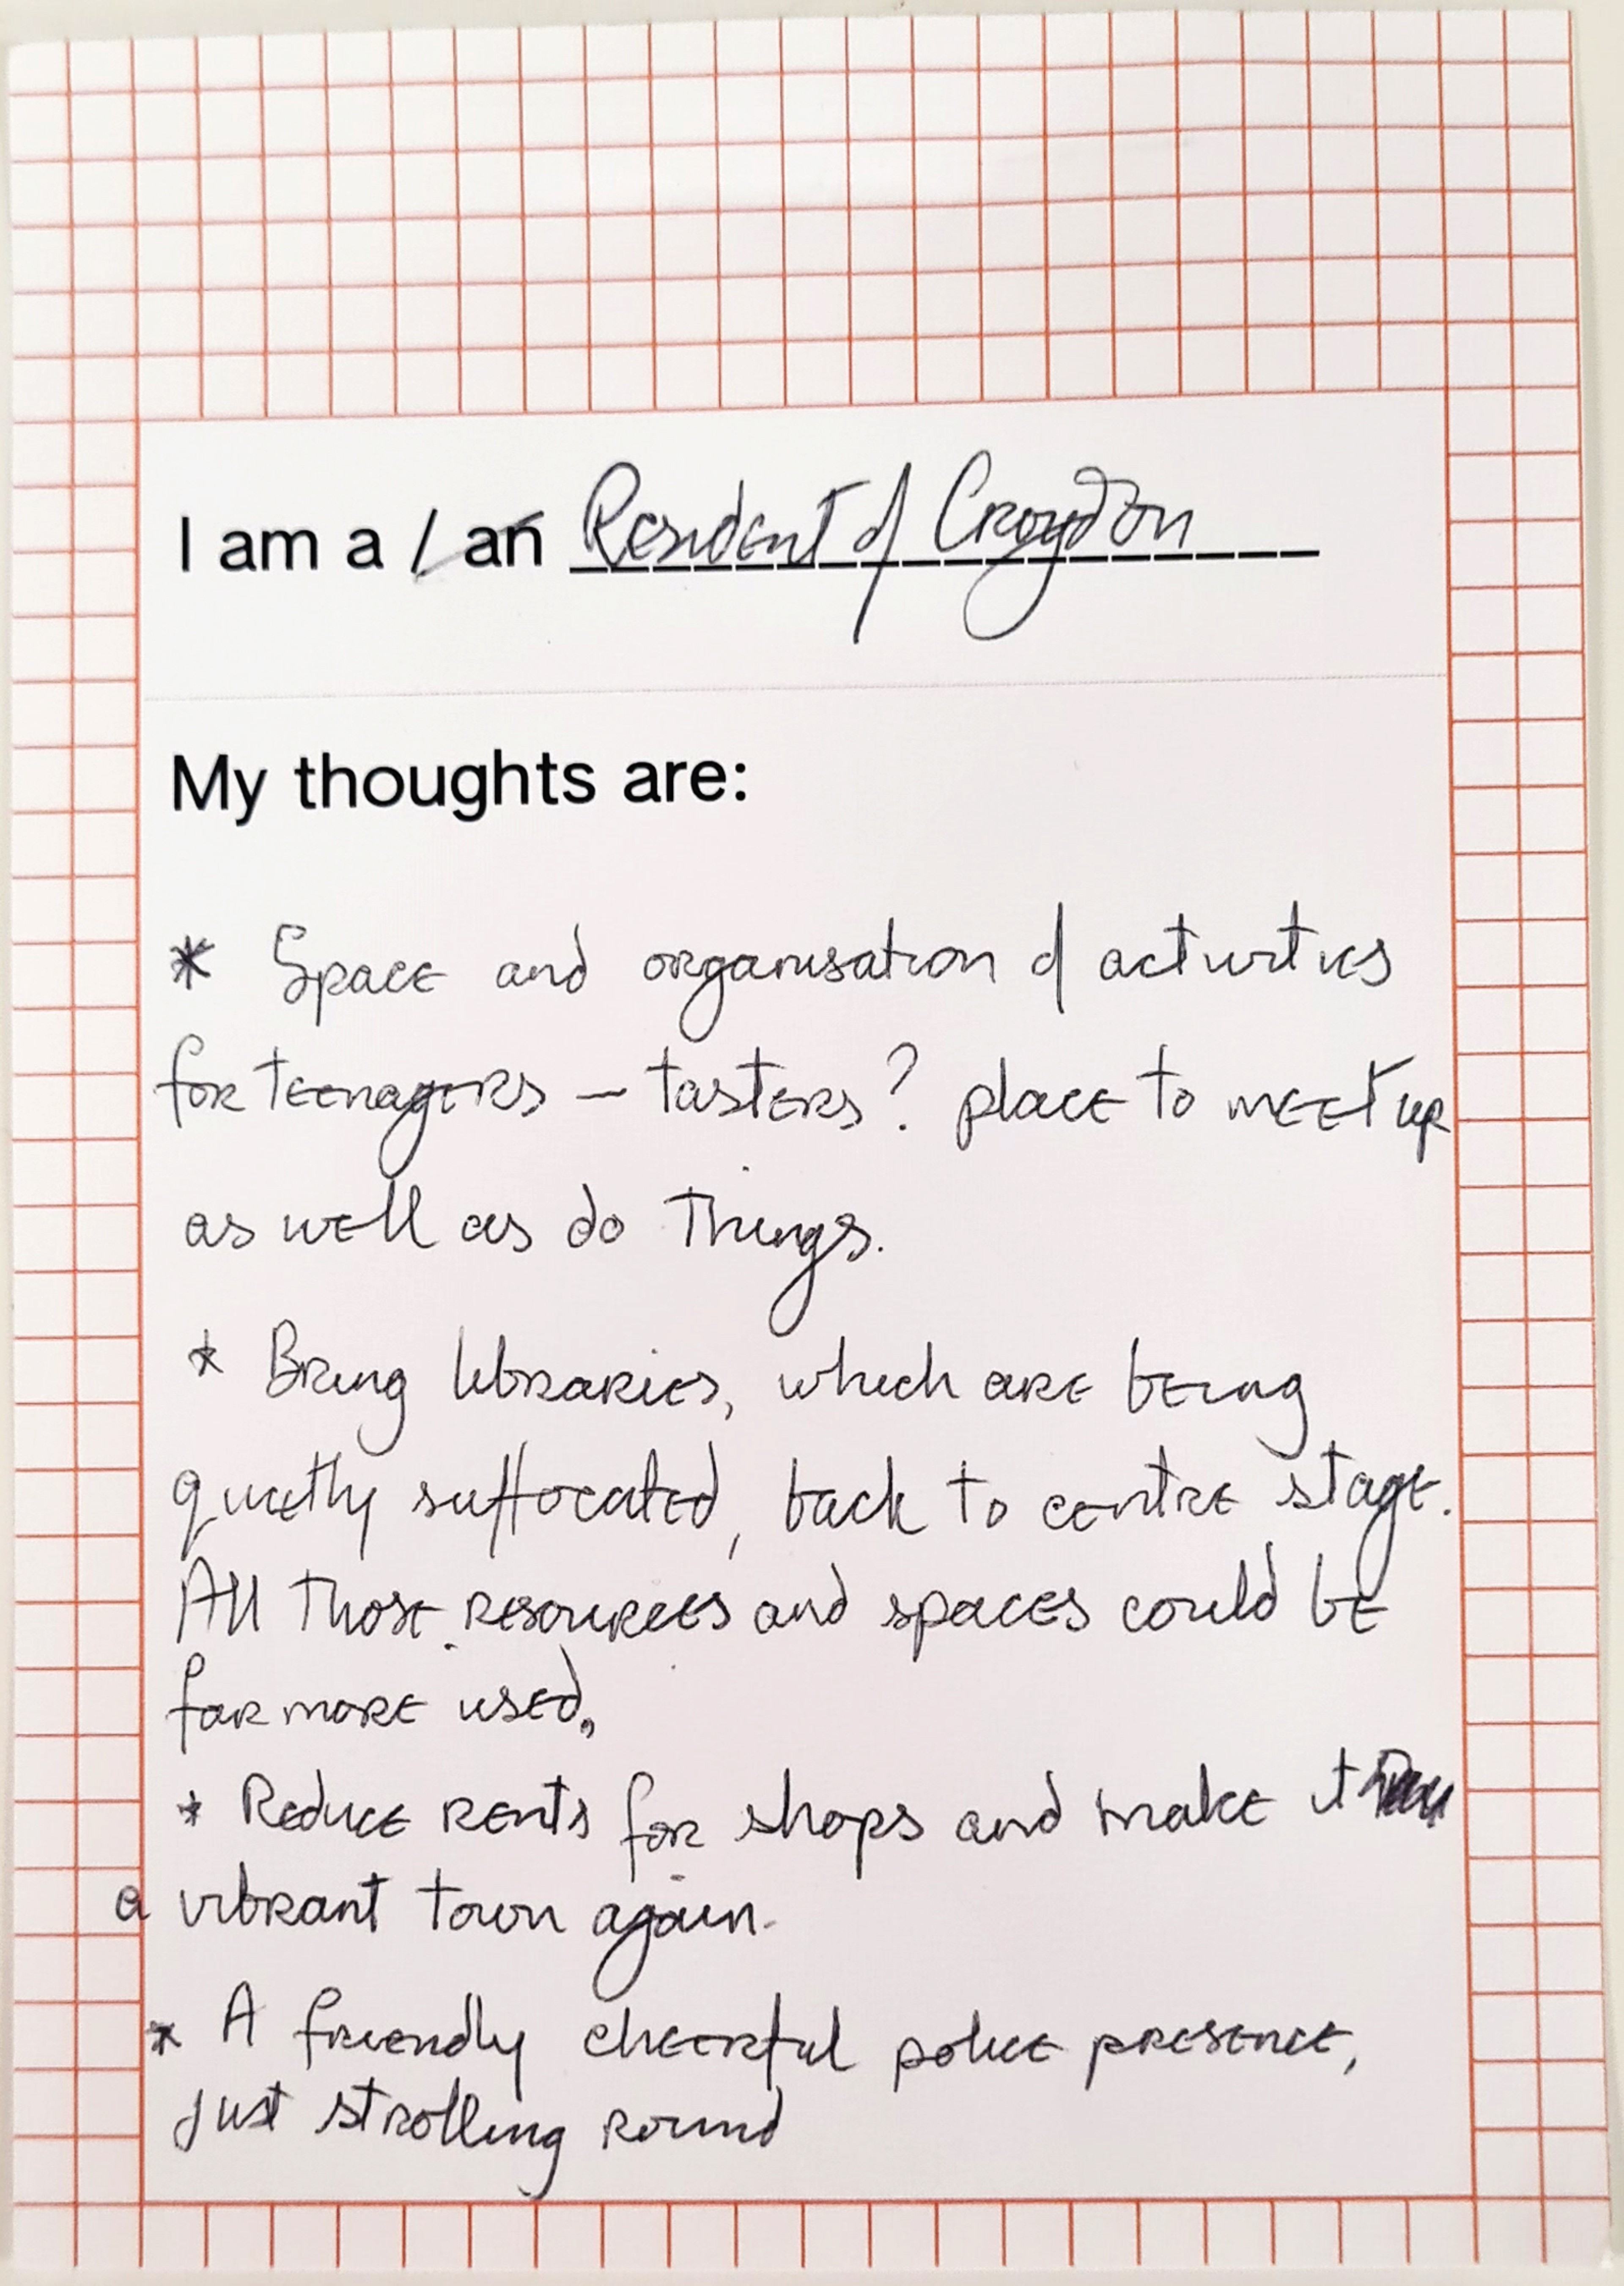 I am a / an Resident of Croydon
My thoughts are:
* Space and organisation of activities
for teenagers – tasters? place to meet up
as well as do things.
* Bring libraries, which are being
quietly suffocated, back to centre stage.
All those resources and spaces could be
far more used.
* Reduce rents for shops and make it
a vibrant town again.
* A friendly cheerful police presence,
just strolling round